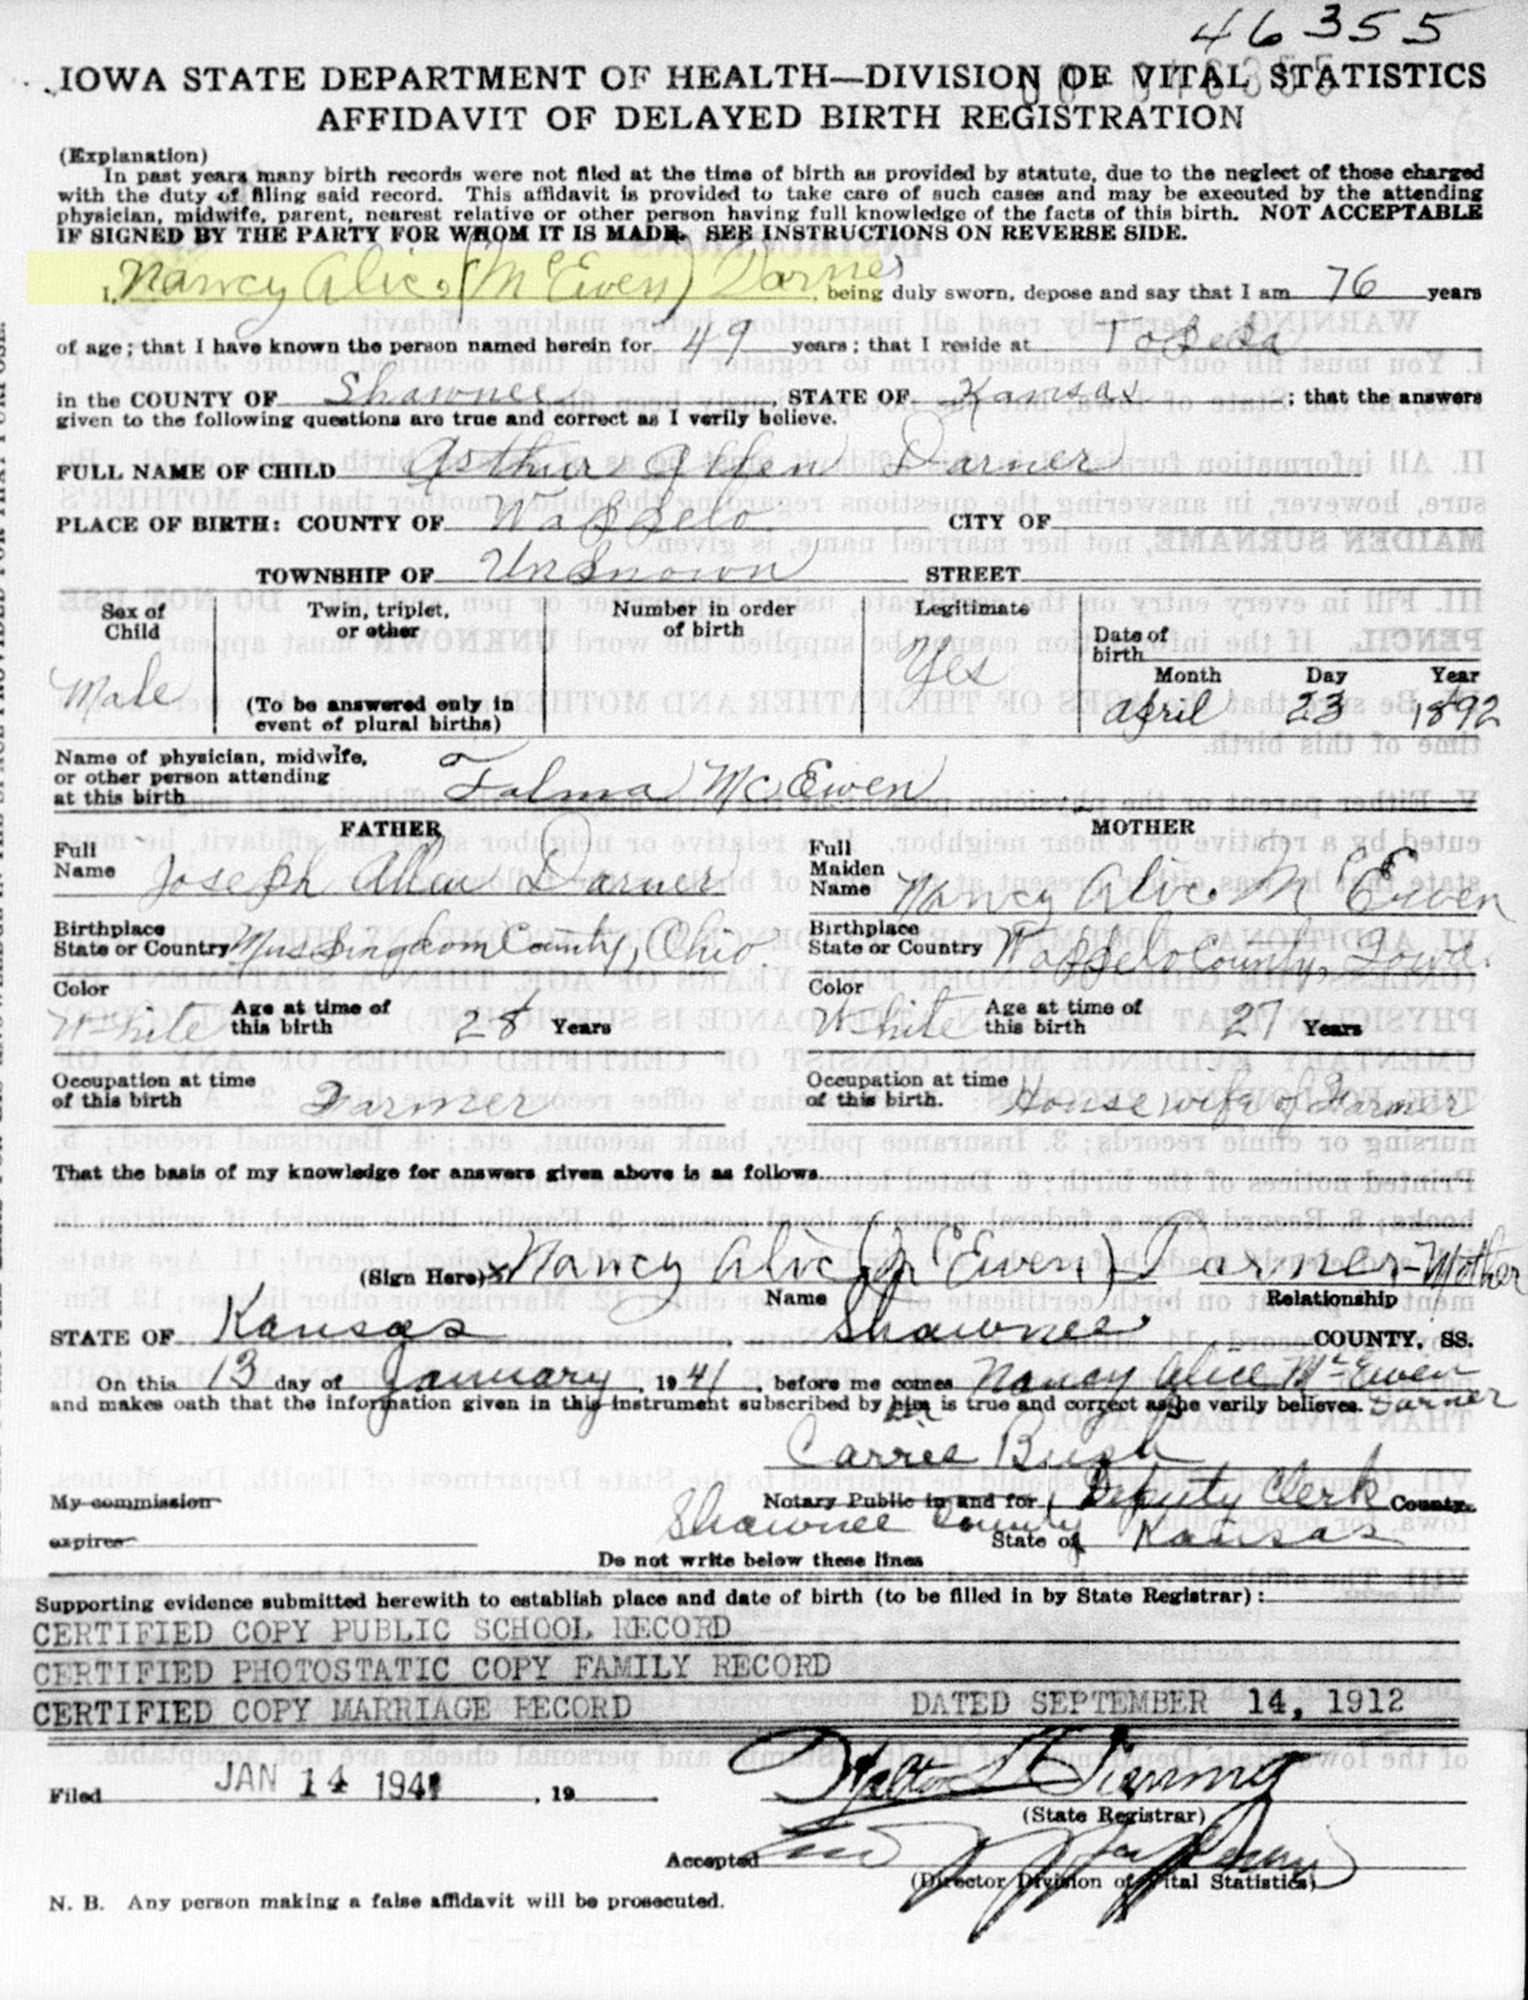 46355
IOWA STATE DEPARTMENT OF HEALTH—DIVISION OF VITAL STATISTICS
AFFIDAVIT OF DELAYED BIRTH REGISTRATION
(Explanation)
In past years many birth records were not filed at the time of birth as provided by statute, due to the neglect of those charged
with the duty of filing said record. This affidavit is provided to take care of such cases and may be executed by the attending
physician, midwife, parent, nearest relative or other person having full knowledge of the facts of this birth. NOT ACCEPTABLE
IF SIGNED BY THE PARTY FOR WHOM IT IS MADE. SEE INSTRUCTIONS ON REVERSE SIDE.
I, Nancy Alice (McEwen) Darner, being duly sworn, depose and say that I am 76 years
of age; that I have known the person named herein for 49 years; that I reside at Topeka
in the COUNTY OF Shawnee, STATE OF Kansas; that the answers
given to the following questions are true and correct as I verily believe.
FULL NAME OF CHILD Arthur Allen Darner
PLACE OF BIRTH: COUNTY OF Wappelo CITY OF
TOWNSHIP OF Unknown STREET
Sex of Child Twin, triplet, or other Number in order of birth Legitimate Date of birth
Month Day Year
Male (To be answered only in event of plural births) Yes April 23 1892
Name of physician, midwife,
or other person attending
at this birth Talma McEwen
FATHER MOTHER
Full Name Joseph Allen Darner Full Maiden Name Nancy Alice McEwen
Birthplace State or Country Muskingdom County, Ohio. Birthplace State or Country Wappelo County, Iowa.
Color White Age at time of this birth 28 Years Color White Age at time of this birth 27 Years
Occupation at time of this birth Farmer Occupation at time of this birth. Housewife of Farmer
That the basis of my knowledge for answers given above is as follows
(Sign Here) x Nancy Alice (McEwen) Darner - Mother
Name Relationship
STATE OF Kansas, Shawnee, COUNTY, SS.
On this 13 day of January, 1941, before me comes Nancy Alice McEwen Darner
and makes oath that the information given in this instrument subscribed by him her is true and correct as he verily believes.
Carrie Bush
My commission Notary Public in and for Deputy Clerk County
expires Shawnee County State of Kansas
Do not write below these lines
Supporting evidence submitted herewith to establish place and date of birth (to be filled in by State Registrar):
CERTIFIED COPY PUBLIC SCHOOL RECORD
CERTIFIED PHOTOSTATIC COPY FAMILY RECORD
CERTIFIED COPY MARRIAGE RECORD DATED SEPTEMBER 14, 1912
Filed JAN 14 1941, 19
(State Registrar)
Accepted
(Director Division of Vital Statistics)
N. B. Any person making a false affidavit will be prosecuted.